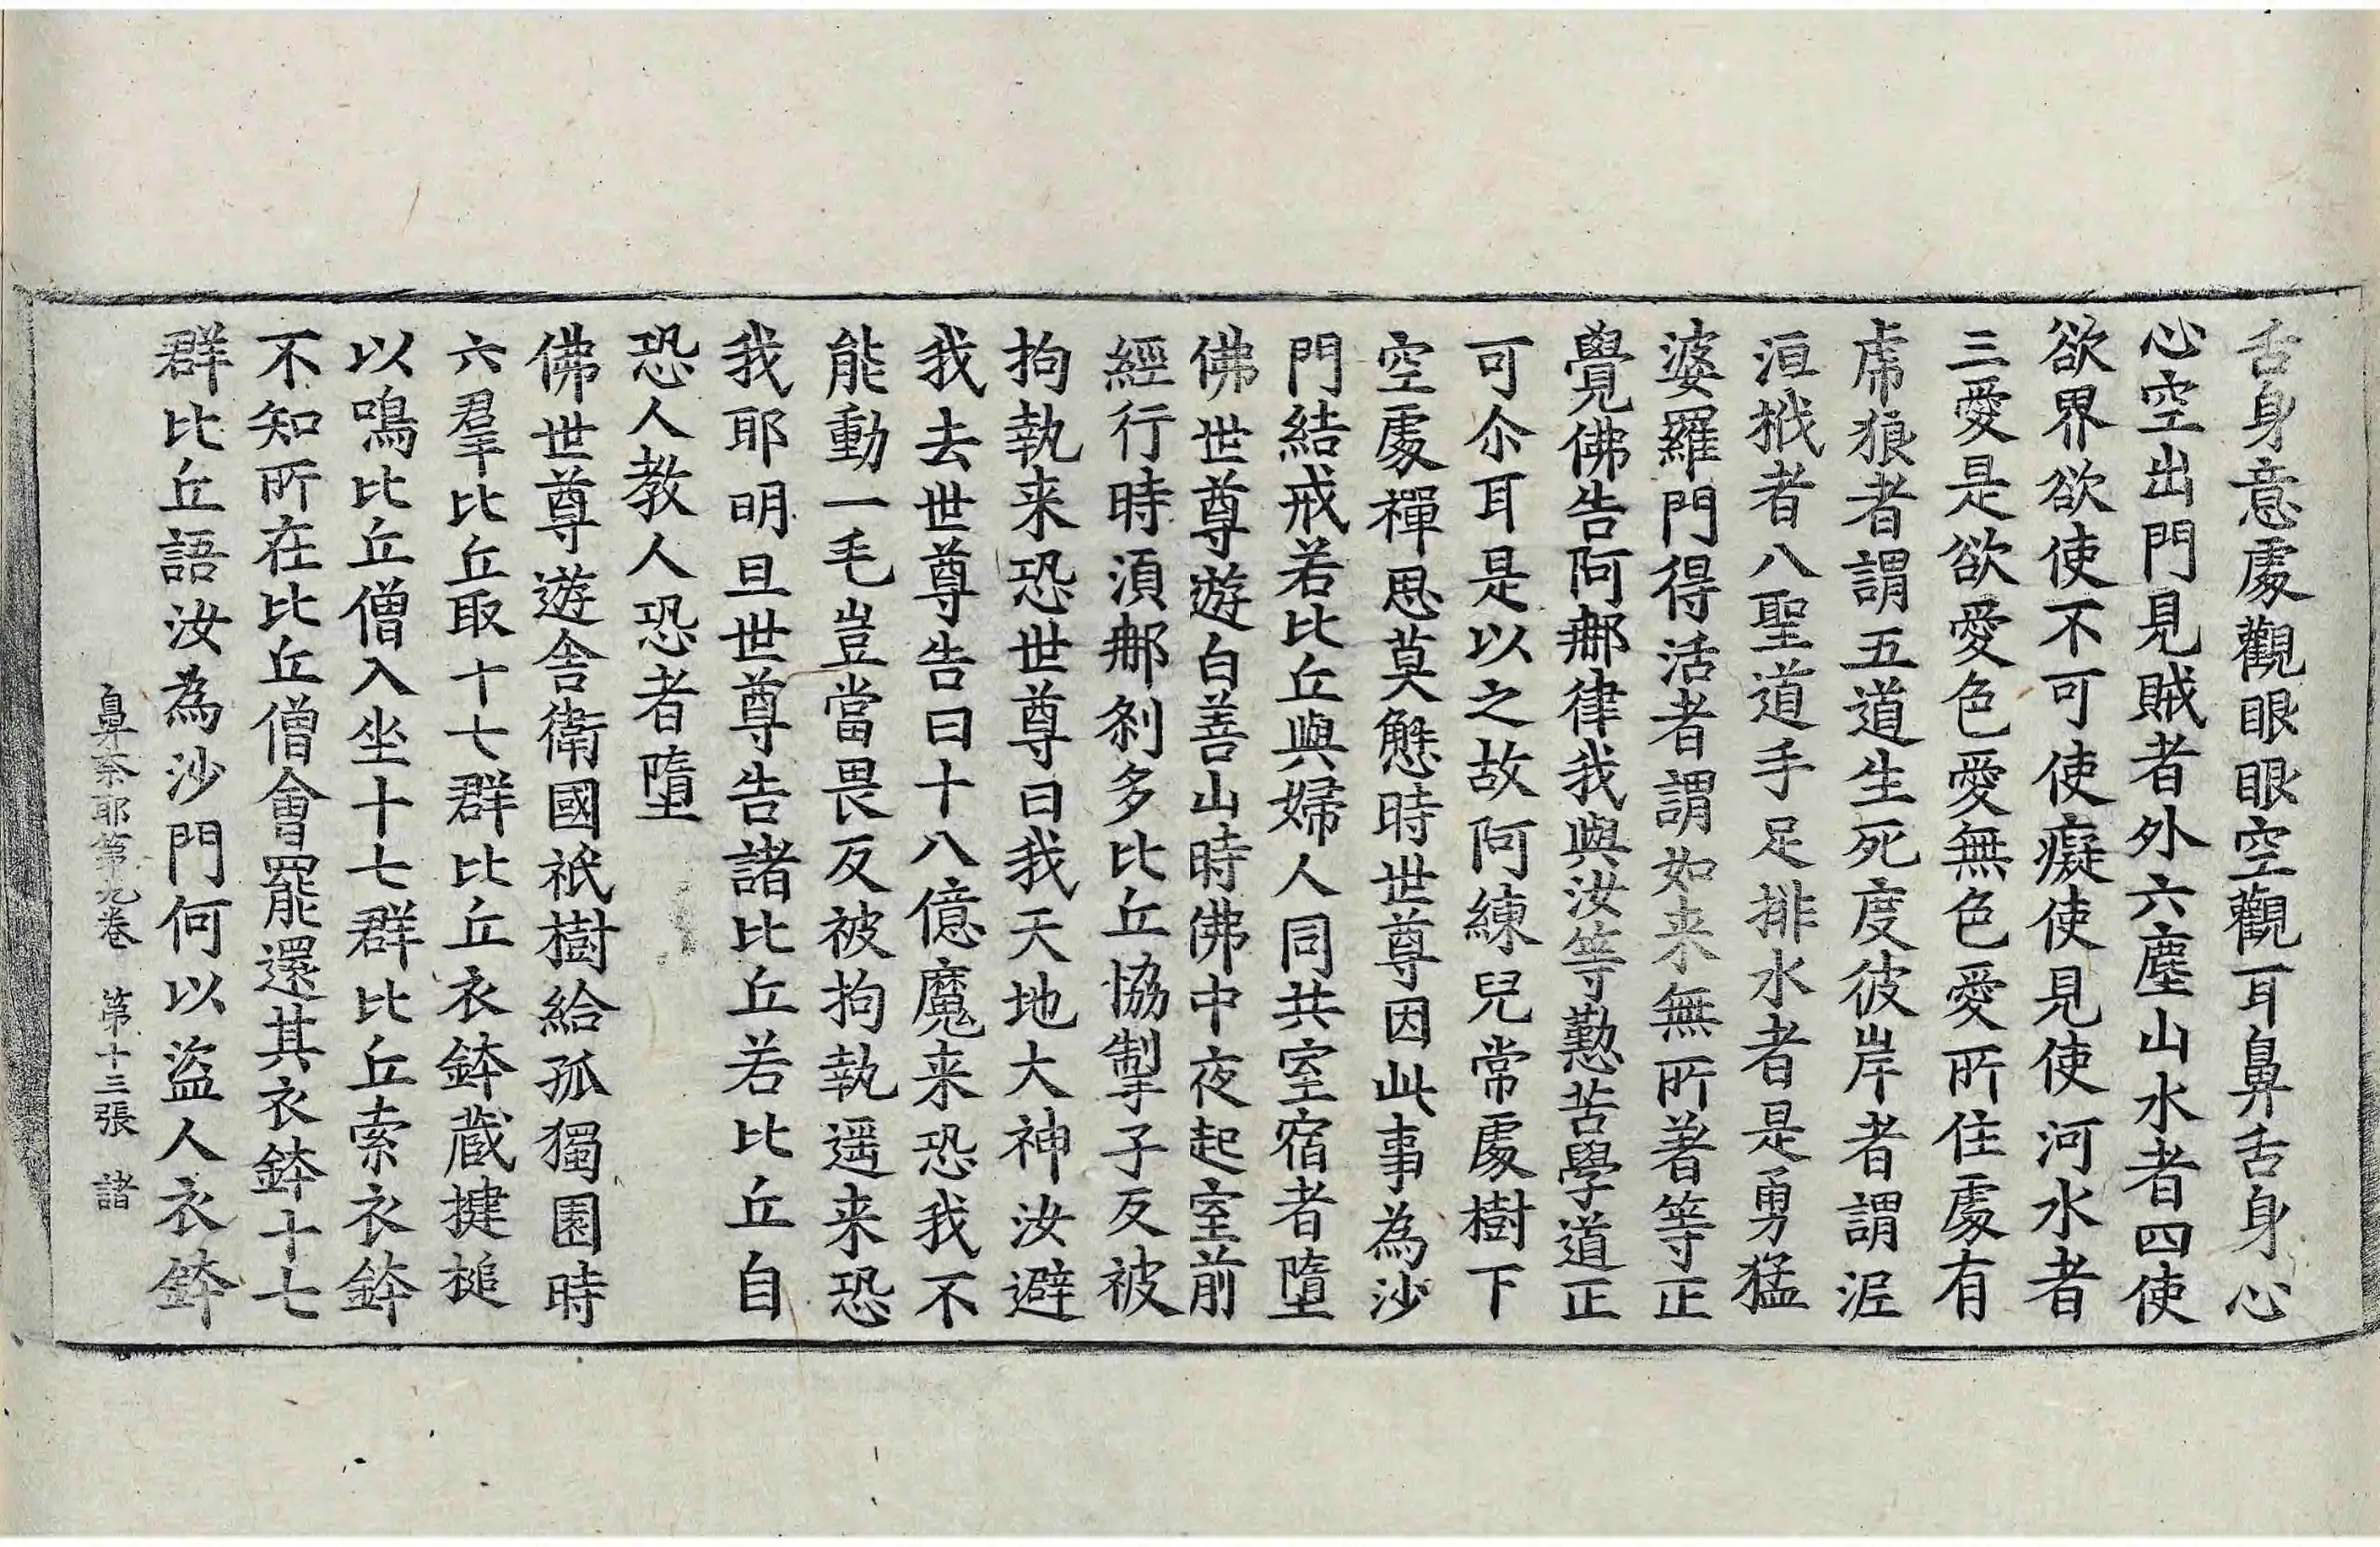 舌身意處觀眼眼空觀耳鼻舌身心
心空出門見賊者外六塵山水者四使
欲界欲使不可使癡使見使河水者
三愛是欲愛色愛無色愛所住處有
虎狼者謂五道生死度彼岸者謂泥
洹栰者八聖道手足排水者是勇猛
婆羅門得活者謂如来無所著等正
覺佛告阿那律我與汝等懃苦學道正
可尒耳是以之故阿練兒常處樹下
空處禪思莫懈時世尊因此事為沙
門結戒若比丘與婦人同共室宿者墮
佛世尊遊白善山時佛中夜起室前
經行時湏那剎多比丘恊掣子反被
拘執来恐世尊曰我天地大神汝避
我去世尊告曰十八億魔来恐我不
能動一毛豈當畏反被拘執遥来恐
我耶明旦世尊告諸比丘若比丘自
恐人教人恐者墮
佛世尊遊舍衛國祇樹給孤獨園時
六羣比丘取十七群比丘衣鉢蔵揵槌
以鳴比丘僧入坐十七群比丘索衣鉢
不知所在比丘僧會罷還其衣鉢十七
群比丘語汝為沙門何以盜人衣鉢
鼻奈耶第九卷　第十三張　諸